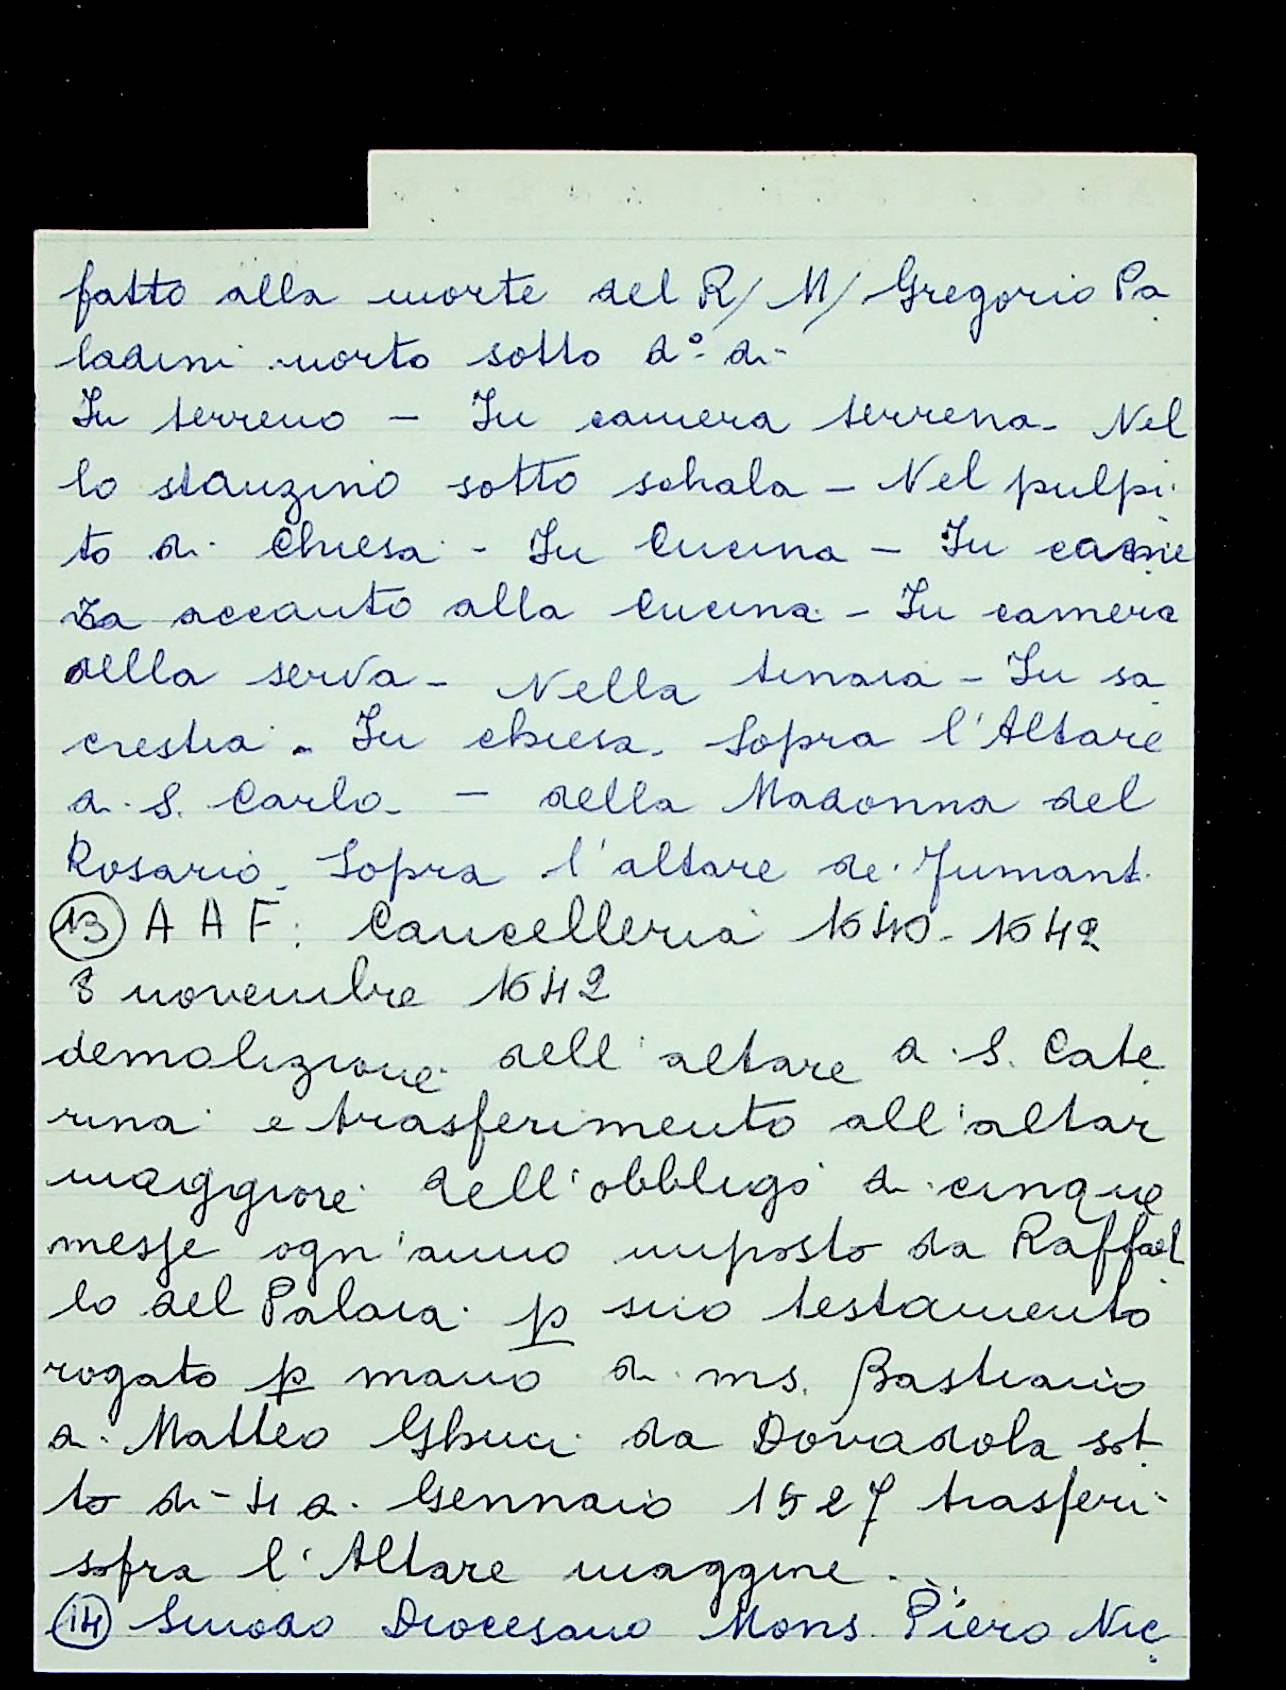 fatto alla morte del R/ M/ Gregorio Pa
ladini morto sotto d.° di
In terreno - In camera terrena - Nel
lo stanzino sotto schala - Nel pulpi
to di Chiesa - In Cucina - In came
ra accanto alla Cucina - In camera
della serva - Nella tinaia - In sa
crestia - In chiesa. Sopra l'Altare
di S. Carlo - - della Madonna del
Rosario - Sopra l'altare de
13 A A F: Cancelleria 1640-1642
8 novembre 1642
demolizione dell'altare di S. Cate
rina e trasferimento all'altar
maggiore dell'obbligo di cinque
messe ogn'anno imposto da Raffael
lo del Palaia p suo testamento
rogato p mano di ms. Bastiano
di Matteo da Dovadola sot
to di - 4 di Gennaio 1527 trasferi
sopra l'Altare maggiore.
14 Sinodo Diocesano Mons. Piero Nic